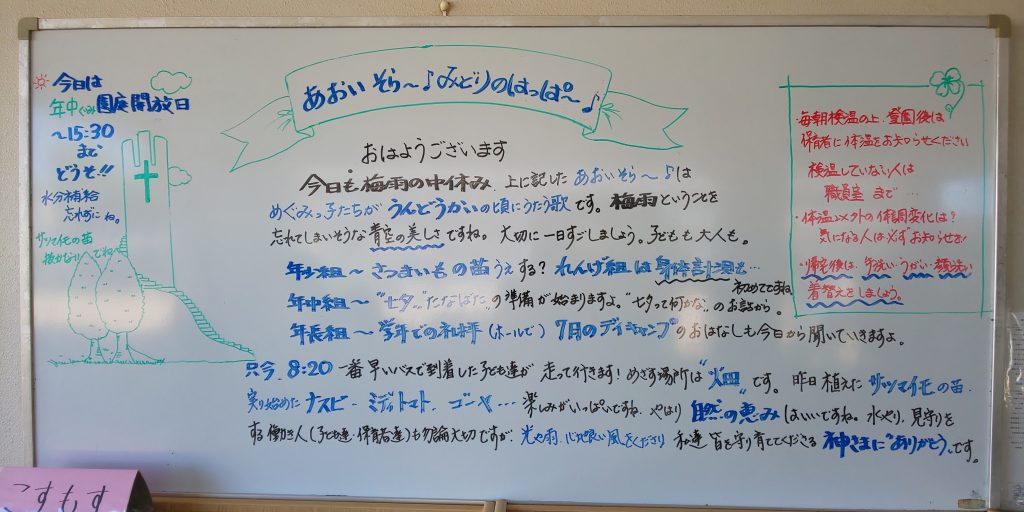 あおい そら～♪みどりのはっぱ～♪
今日は
年中ぐみ園庭開放日
～15:30
まで
どうぞ!!
水分補給
忘れずにね。
サツマイモの苗
おはようございます
今日も梅雨の中休み、上に記したあおいそら～♪は
めぐみっ子たちがうんどうかいの頃にうたう歌です。梅雨ということを
忘れてしまいそうな青空の美しさですね。大切に一日すごしましょう。子どもも大人も。
年少組～さつまいもの苗うえする?れんげ組は身体計測も…
初めてですね
年中組～"七夕"たなばた"の準備が始まりますよ。"七夕って何かな"のお話から。
年長組～学年での礼拝(ホールで)7月のデイキャンプのおはなしも今日から聞いていきますよ。
只今、8:20 一番早いバスで到着した子ども達が走って行きます!めざす場所は"畑"です。昨日植えたサツマイモの苗、
実り始めたナスビ・ミディトマト、ゴーヤ…楽しみがいっぱいですね、やはり自然の恵みはいいですね。水やり、見守りを
する働き人(子ども達・保育者達)も勿論大切ですが、光や雨、心地良い風をくださり 私達皆を守り育ててくださる神さまに"ありがとう"です。
・毎朝検温の上、登園後は
保育者に体温をお知らせください
検温していない人は
職員室まで…
・体温以外の体調変化は?
気になる人は必ずお知らせを!
・帰宅後は、手洗い・うがい・顔洗い
着替えをしましょう。
こすもす